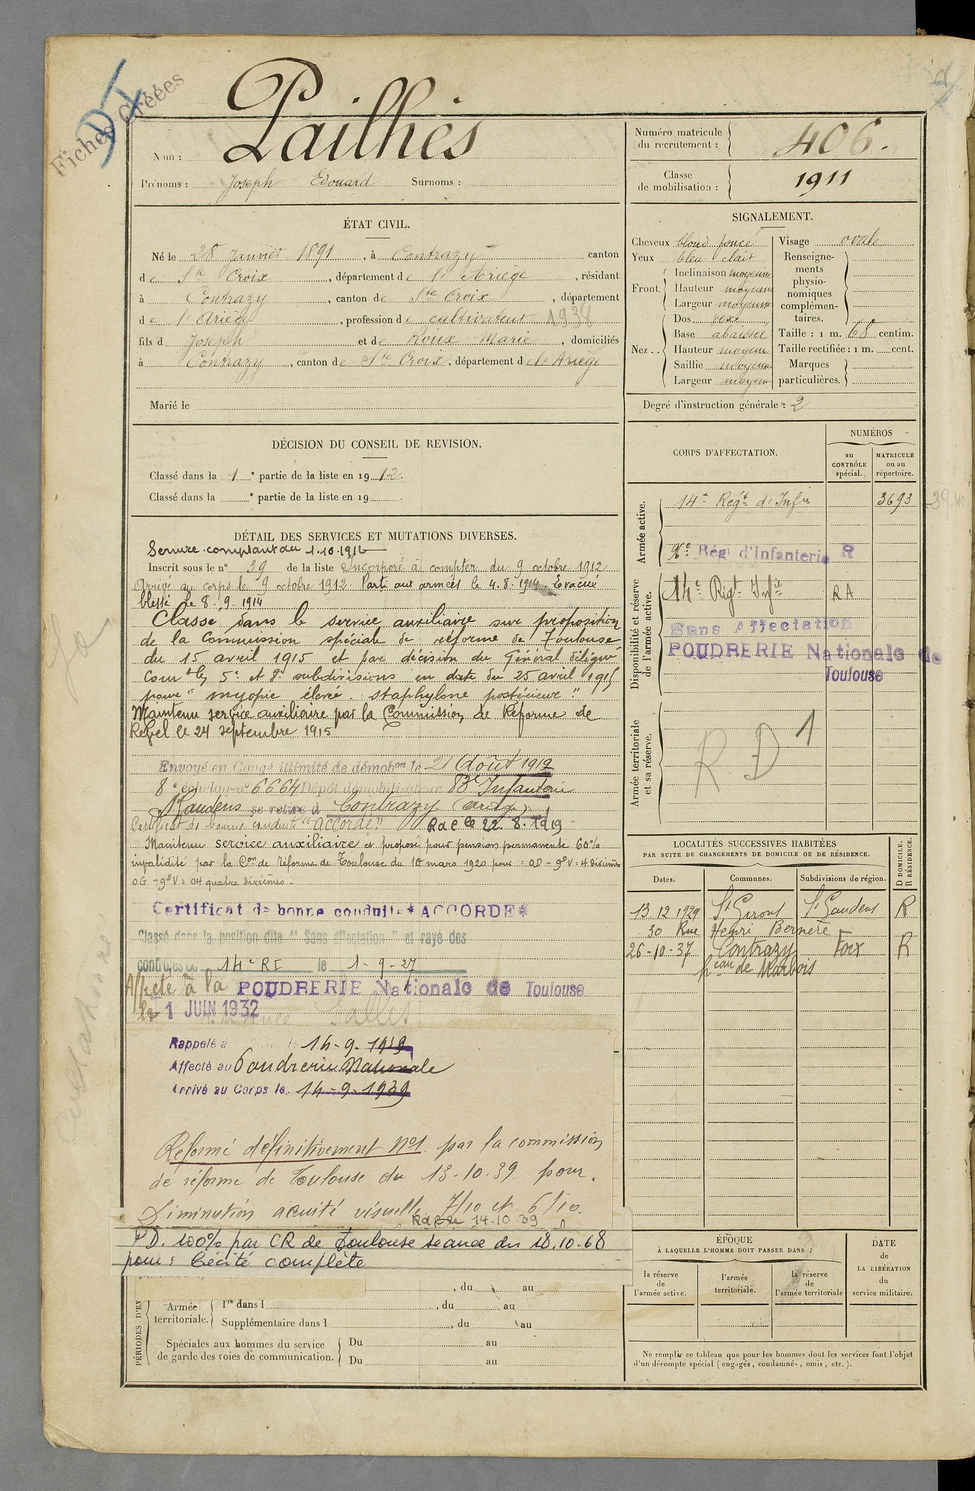 Fiches Créées
D1
Nom : Pailhès
Prénoms : Joseph Edouard Surnoms :
Numéro matricule du recrutement : 406.
Classe de mobilisation : 1911
ÉTAT CIVIL.
Né le 28 Janvier 1891, à Contrazy canton
de Ste Croix, département de l'Ariège, résidant
à Contrazy, canton de Ste Croix, département
de l'Ariège, profession de cultivateur 1938
fils de Joseph et de Roux Marie, domiciliés
à Contrazy, canton de Ste Croix, département de l'Ariège
Marié le
SIGNALEMENT.
Cheveux blond foncé
Yeux bleu clair
Front. Inclinaison moyenne
Hauteur moyenne
Largeur moyenne
Nez .. Dos
Base abaissée
Hauteur moyenne
Saillie moyenne
Largeur moyenne
Visage ovale
Renseignements physionomiques complémentaires.
Taille : 1 m. 68 centim.
Taille rectifiée : 1 m. cent.
Marques particulières.
Degré d'instruction générale : 2
DÉCISION DU CONSEIL DE REVISION.
Classé dans la 1e partie de la liste en 1912.
Classé dans la e partie de la liste en 19 .
DÉTAIL DES SERVICES ET MUTATIONS DIVERSES.
Service comptant du 1.10.1912
Inscrit sous le n° 39 de la liste Incorporé à compter du 9 octobre 1912
Arrivé au corps le 9 octobre 1912. Parti aux armées le 4.8.1914 Evacué
blessé le 8.9.1914
Classé dans le service auxiliaire sur proposition
de la Commission spéciale de réforme de Toulouse
du 15 avril 1915 et par décision du Général délégué
Comdt les 5e et 8e subdivisions en date du 25 avril 1915
pour "myopie élevée. staphylome postérieur"
Maintenu service auxiliaire par la Commission de Réforme de
Revel le 24 septembre 1915
Envoyé en Congé illimité de démobon le 21 Août 1919
8e échelon n° 6664 Dépôt démobilisateur 83e Infanterie
St Gaudens se retire à Contrazy (Ariège)
Certificat de bonne conduite "accordé" RdC le 22.8.1919
Maintenu service auxiliaire et proposé pour pension permanente 60%
invalidité par la Con de réforme de Toulouse du 10 mars 1920 pour : OD - V = 4 dixièmes
OG - V = 04 quatre dixièmes -
Certificat de bonne conduite *ACCORDE*
Classé dans la position dite "Sans affectation" et rayé des
contrôles du 14e RI le 1-9-27
Affecté à la POUDRERIE Nationale de Toulouse
le 1 JUIN 1932
Rappelé à le 14-9-1939
Affecté au Poudrerie Nationale
Arrivé au Corps le 14-9-1939
Réformé définitivement N°1 par la commission
de réforme de Toulouse du 13-10-39 pour.
Diminution acuité visuelle 7/10 et 6/10.
RdC le 14.10 39
PD. 100% par CR de Toulouse séance du 18.10-68
pour : Cécité complète
, du au
PÉRIODES D'EX
Armée territoriale. 1re dans l , du au
Supplémentaire dans l , du au
Spéciales aux hommes du service de garde des voies de communication. Du au
Du au
CORPS D'AFFECTATION.
NUMÉROS
au CONTRÔLE spécial.
MATRICULE ou au répertoire.
Armée active.
14e Regt d'Infie 3693
Régt d'Infanterie
Disponibilité et réserve de l'armée active.
14e Regt Infie RA
Sans Affectation
POUDRERIE Nationale de
Toulouse
Armée territoriale et sa réserve.
RD 1
LOCALITÉS SUCCESSIVES HABITÉES
PAR SUITE DE CHANGEMENTS DE DOMICILE OU DE RÉSIDENCE.
Dates. Communes. Subdivisions de région. D DOMICILE. R RÉSIDENCE.
13 12 1929 St Girons St Gaudens R
30 Rue Henri Bernère
26-10-37 Contrazy Foix R
ÉPOQUE
À LAQUELLE L'HOMME DOIT PASSER DANS :
la réserve de l'armée active.
l'armée territoriale.
la réserve de l'armée territoriale
DATE de LA LIBÉRATION du service militaire.
Ne remplir ce tableau que pour les hommes dont les services font l'objet
d'un décompte spécial (engagés, condamnés, omis, etc.).